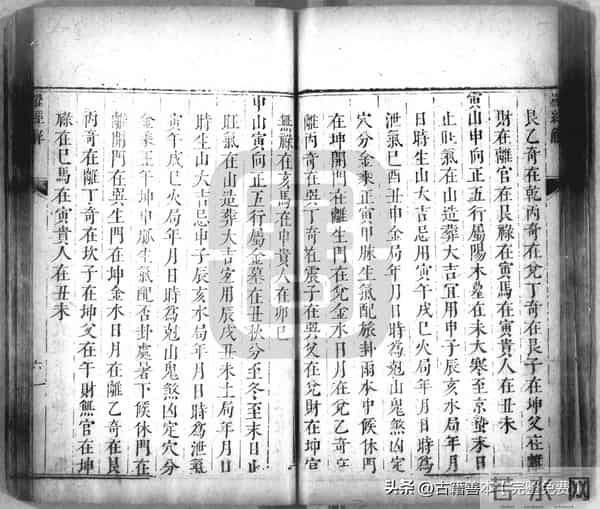 艮乙奇在乾丙奇在兌丁奇在艮子在坤父在離
財在離官在艮祿在寅馬在寅貴人在丑未
寅山申向正五行屬陽木墓在未大寒至京蟄末日
止旺氣在山造葬大吉宜用申子辰亥水局年月
日時生山大吉忌用寅午戌巳火局年月日時爲
泄氣巳酉丑申金局年月日時爲尅山鬼煞凶定
穴分金乘正寅甲脉生氣配旅卦雨本中候休門
在坤開門在離生門在兌金水日月在兌乙奇在
離丙奇在巽丁奇在震子在巽父在兌財在坤官
無祿在亥馬在申貴人在卯巳
申山寅向正五行屬金墓在丑秋分至冬至末日止
旺氣在山造葬大吉宜用辰戌丑未土局年月日
時生山大吉忌申子辰亥水局年月日時爲泄氣
寅午戌巳火局年月日時爲尅山鬼煞凶定穴分
金乘正坤申脉生氣配否卦處暑下候休門在
離開門在巽生門在坤金水日月在離乙奇在艮
丙奇在離丁奇在坎子在坤父在午財無官在坤
祿在巳馬在寅貴人在丑未
經解
六
头条 @古籍善本十完整免费